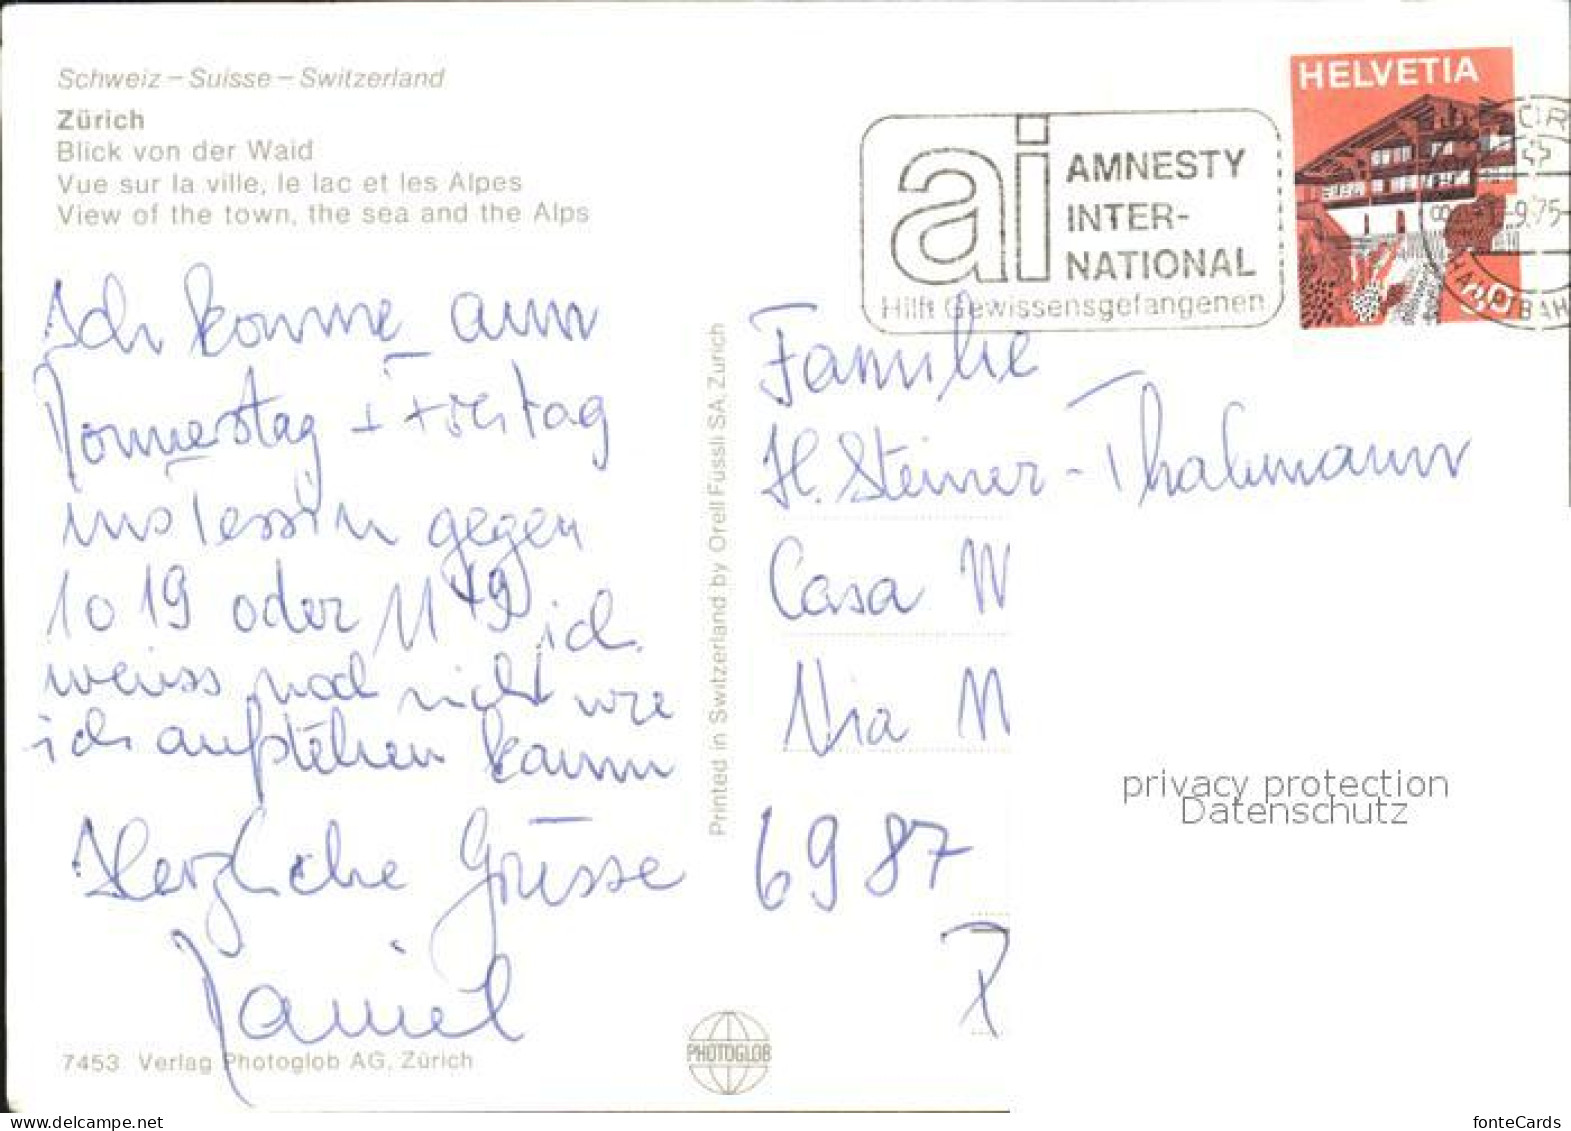 Schweiz – Suisse – Switzerland
Zürich
Blick von der Waid
Vue sur la ville, le lac et les Alpes
View of the town, the sea and the Alps
ai AMNESTY
INTER-
NATIONAL
Hilft Gewissensgefangenen
HELVETIA
9.75
Ich komme am
Donnerstag + Freitag
ins Tessin gegen
10 19 oder 11 19 ich
weiss noch nicht wie
ich aufstehen kann
Herzliche Grüsse
Daniel
Printed in Switzerland by Orell Füssli SA, Zürich
Familie
H. Steiner - Thalmann
Casa
Via
6987
privacy protection
Datenschutz
7453 Verlag Photoglob AG, Zürich
PHOTOGLOB
www.delcampe.net
fonteCards